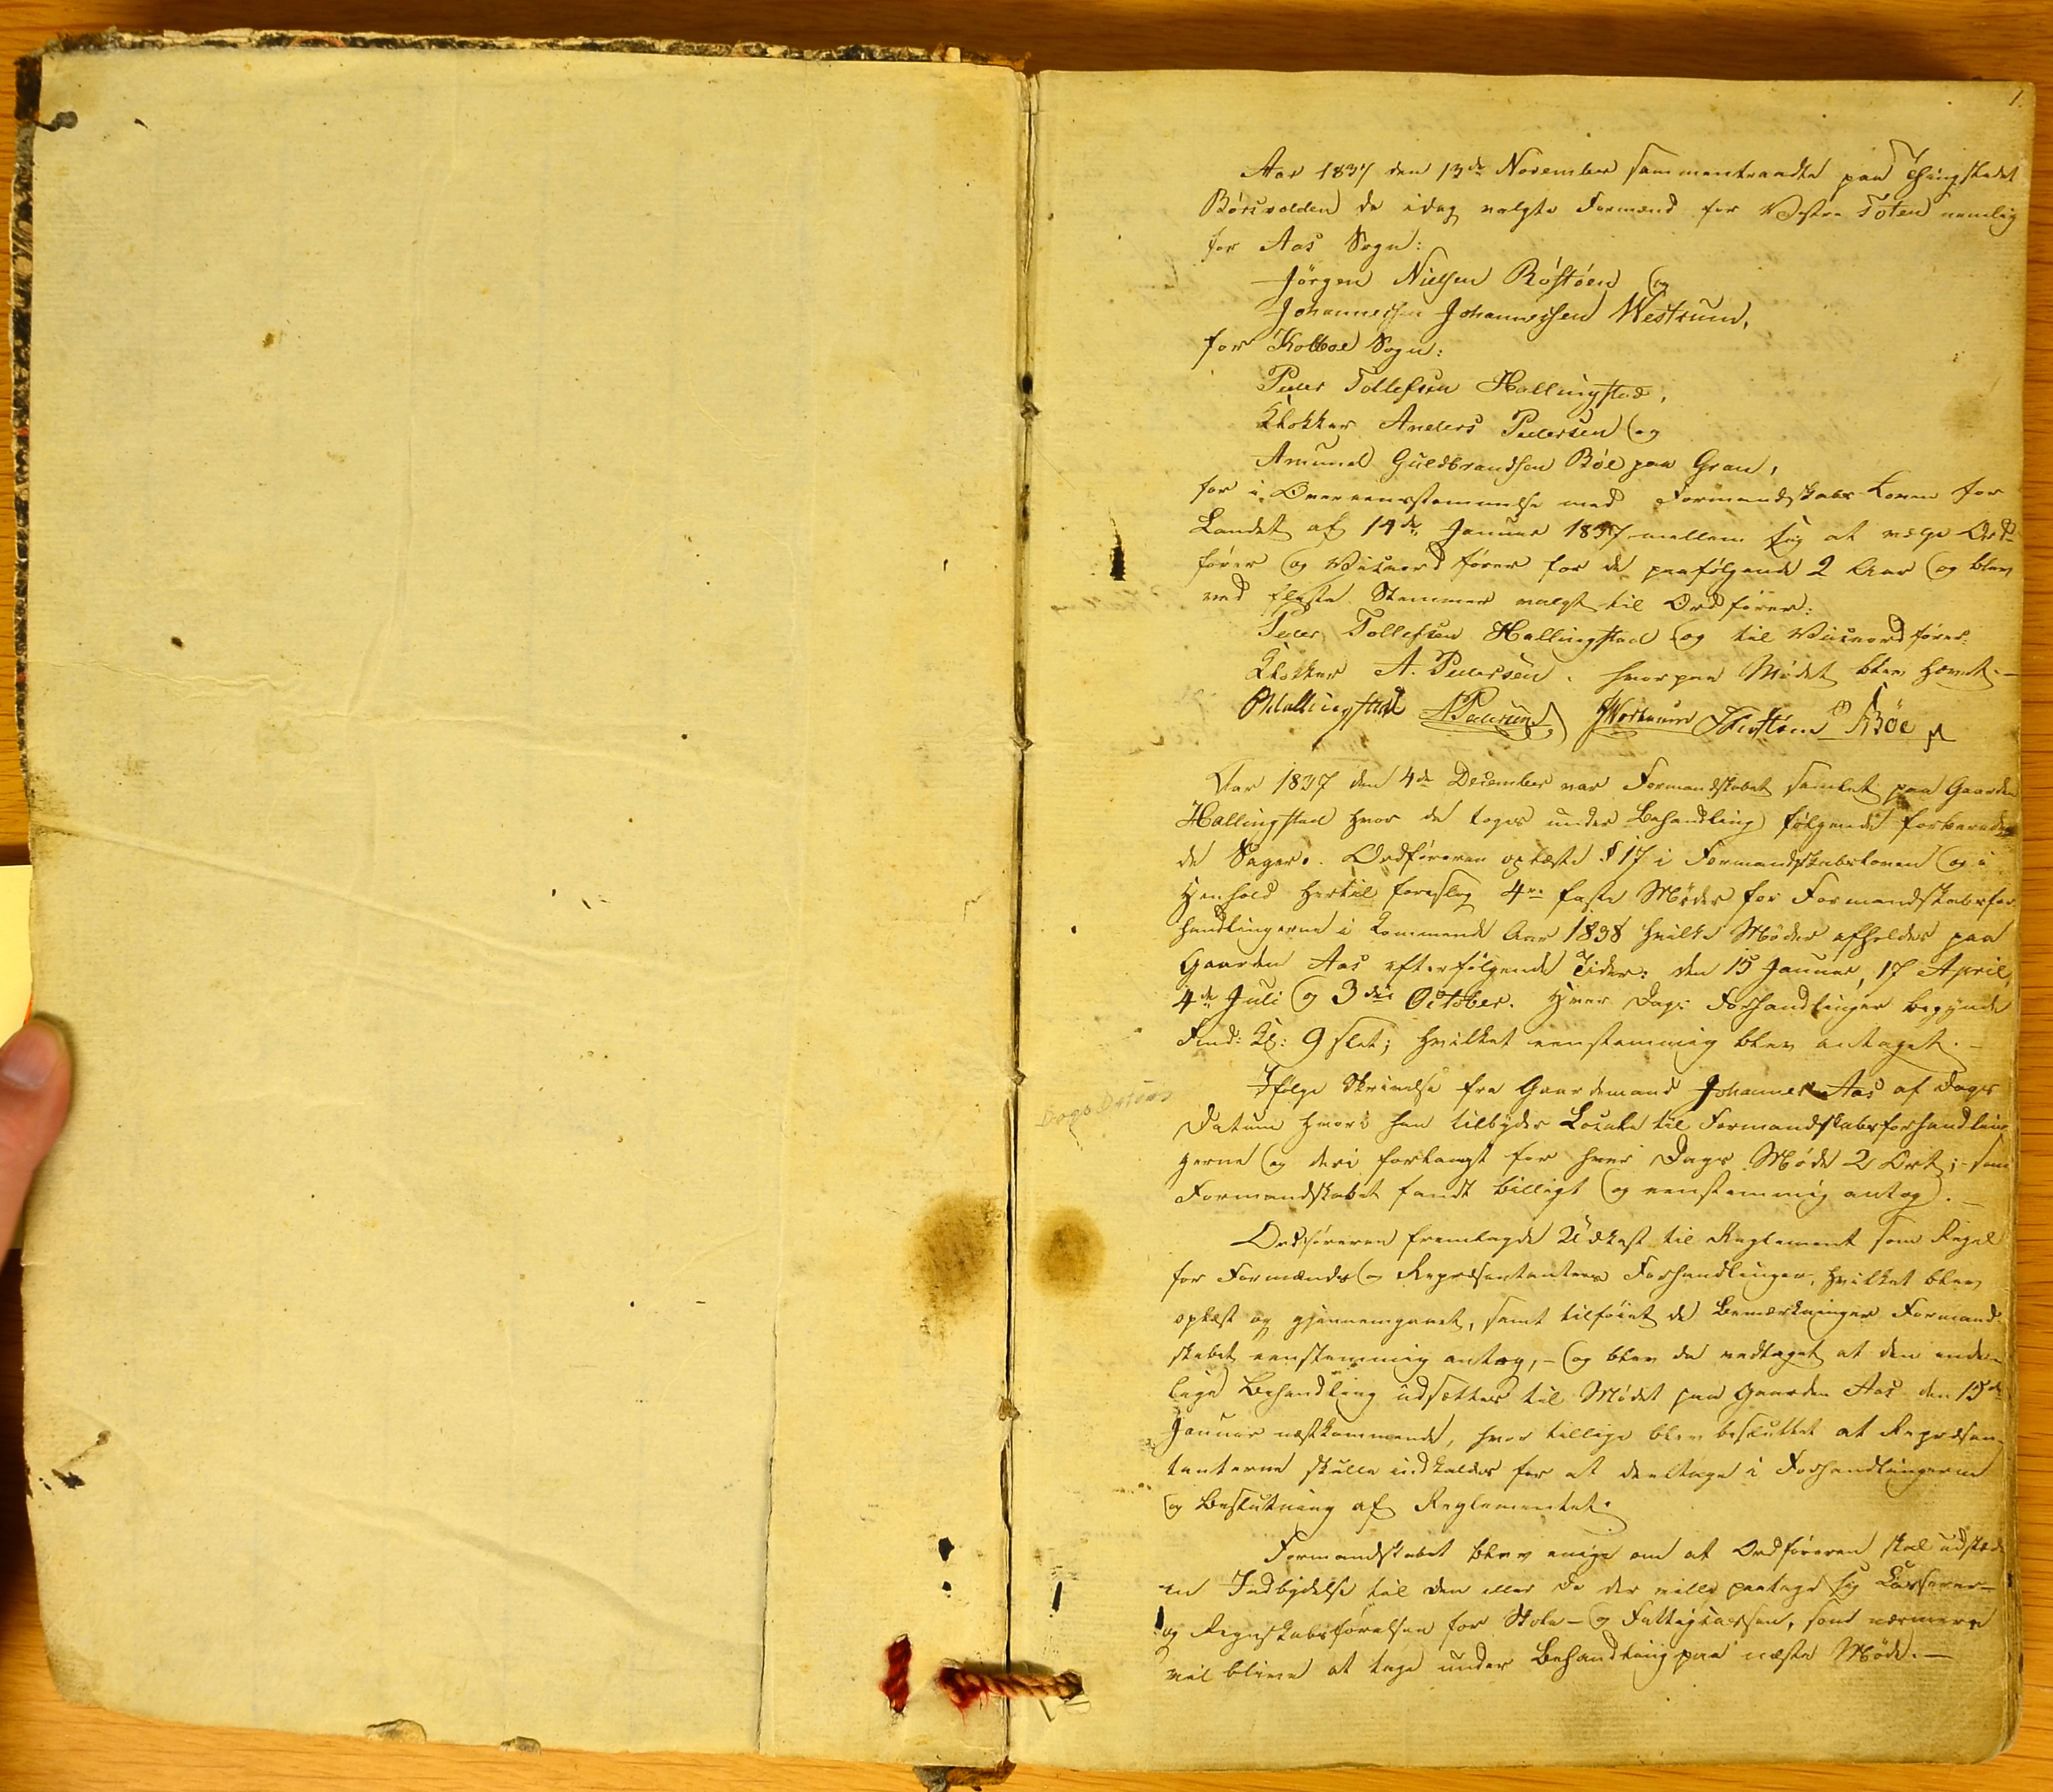 1.
Aar 1837 den 13de November sammentraadte paa Thingstedet
Börsvolden de idag valgte Formænd for Vestre Toten nemlig
for Aas Sogn:
Jörgen Nielsen Röstöen og
Johannes Johannessen Westrum,
for Kolboe Sogn:
Peder Tollefsen Hallingstad,
Klokker Anders Pedersen og
Amund Guldbrandsen Böe paa Gran,
for i Overeensstemmelse med Formandskabs Loven for
Landet af 14de Januar 1837 mellem sig at vælge Ord-
förer og Viceordförer for de paafölgende 2 Aar og blev
ved fleste Stemmer valgt til Ordförer:
Peder Tollefsen Hallingstad og til Viceordförer:
Klokker A. Pedersen, hvorpaa Mödet blev hævet.—
PHallingstad APedersen JWestrum Böe
Aar 1837 den 4de December var Formandskabet samlet paa Gaarden
Hallingstad hvor da toges under Behandling fölgende forbereden-
de Sager. Ordföreren oplæste § 17 i Formandskabsloven og i
Henhold hertil foreslog 4re faste Möder for Formandskabsfor-
handlingerne i kommende Aar 1838 hvilke Möder afholdes paa
Gaarden Aas efterfölgende Tider: den 15 Januar, 17 April,
4de Juli og 3die October. Hver Dags Forhandlinger begynde
Fmd: Kl: 9 slet; hvilket eenstemmig blev antaget.—
Ifölge Skrivelse fra Gaardmand Johannes Aas af Dags
Dags Datum
Datum hvori han tilbyder Locale til Formandskabsforhandlin-
gerne og deri forlangt for hver Dags Möde 2 Ort; som
Formandskabet fandt billigt og eenstemmig antog.—
Ordföreren fremlagde Udkast til Reglement som Regel
for Formænds og Repræsentanters Forhandlinger, hvilket blev
oplæst og gjennemgaaet, samt tilföiet de Bemærkninger Formand-
skabet eenstemmig antog,— og blev da vedtaget at den ende-
lige Behandling udsættes til Mödet paa Gaarden Aas den 15de
Januar næstkommende, hvor tillige blev besluttet at Repræsen-
tanterne skulle indkaldes for at deeltage i Forhandlingerne
og Beslutning af Reglementet.
Formandskabet blev enige om at Ordföreren skal udstæde
en Indbydelse til den eller de der ville paatage sig Casserer-
og Regnskabsförelsen for Skole- og Fattigcassen, som nærmere
vil blive at tage under Behandling paa næste Möde.—